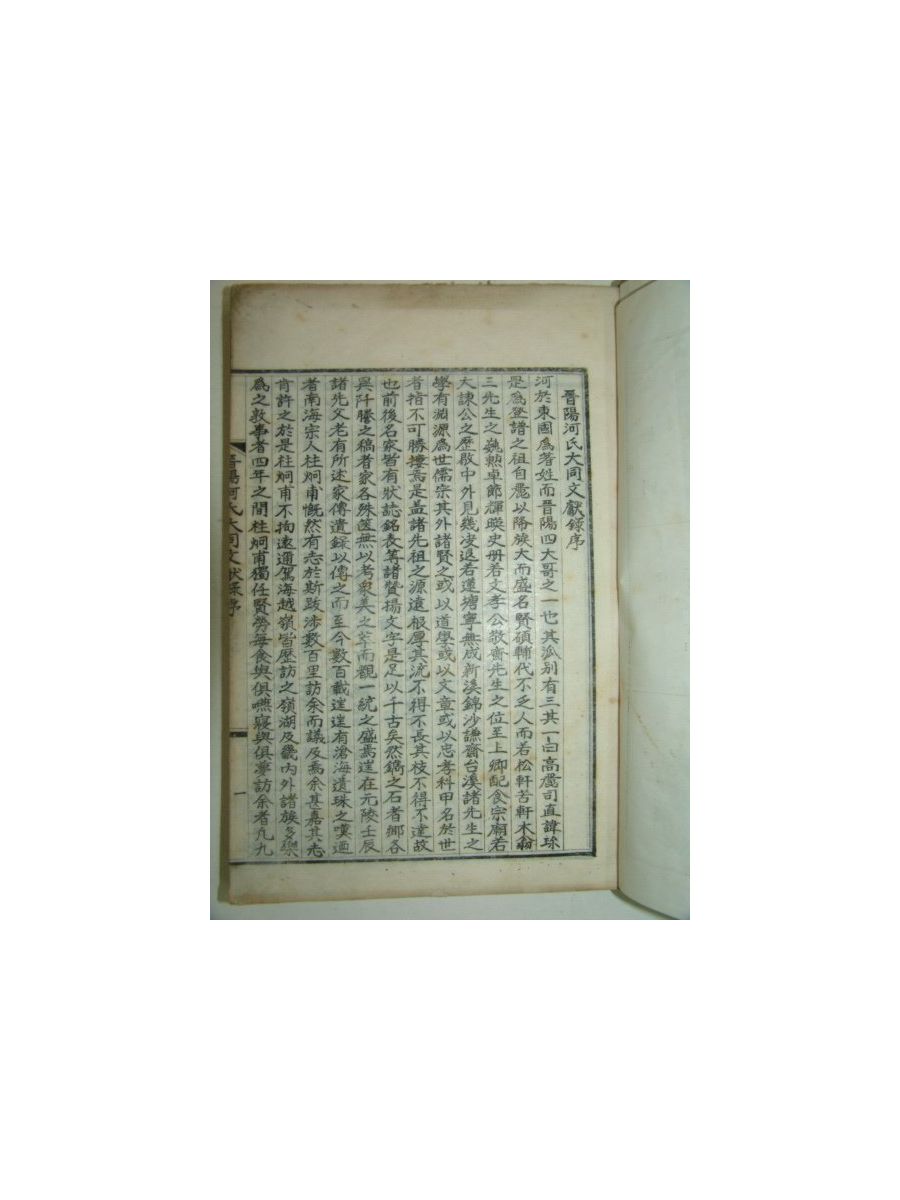 晋陽河氏大同文獻錄序
河於東國爲著姓而晋陽四大哥之一也其派别有三其一曰高麗司直諱珍
是爲登譜之祖自麗以降族大而盛名賢碩輔代不乏人而若松軒苦軒木翁
三先生之巍勲卓節輝暎史册若文孝公敬齋先生之位至上卿配食宗廟若
大諫公之歷敭中外見幾凌退若蓮塘寧無成新溪錦沙謙齋台溪諸先生之
學有淵源爲世儒宗其外諸賢之或以道學或以文章或以忠孝科甲名於世
者指不可勝摟焉是盖諸先祖之源遠根厚其流不得不長其枝不得不達故
也前後名家皆有狀誌銘表等諸贊揚文字是足以千古矣然鐫之石者鄉各
異阡謄之稿者家各殊篋無以考衆美之萃而觀一統之盛焉逞在元陵壬辰
諸先父老有所述家傳遺錄以傳之而至今數百載逞逞有滄海遺珠之嘆迺
者南海宗人柱炯甫慨然有志於斯跋涉數百里訪余而議及焉余甚嘉其志
肯許之於是柱炯甫不拘遠邇駕海越嶺皆歷訪之嶺湖及畿内外諸族多樂
爲之敦事者四年之間柱炯甫獨任賢勞每食與俱嚥寢與俱夢訪余者凡九
晋陽河氏大同文獻錄序
一